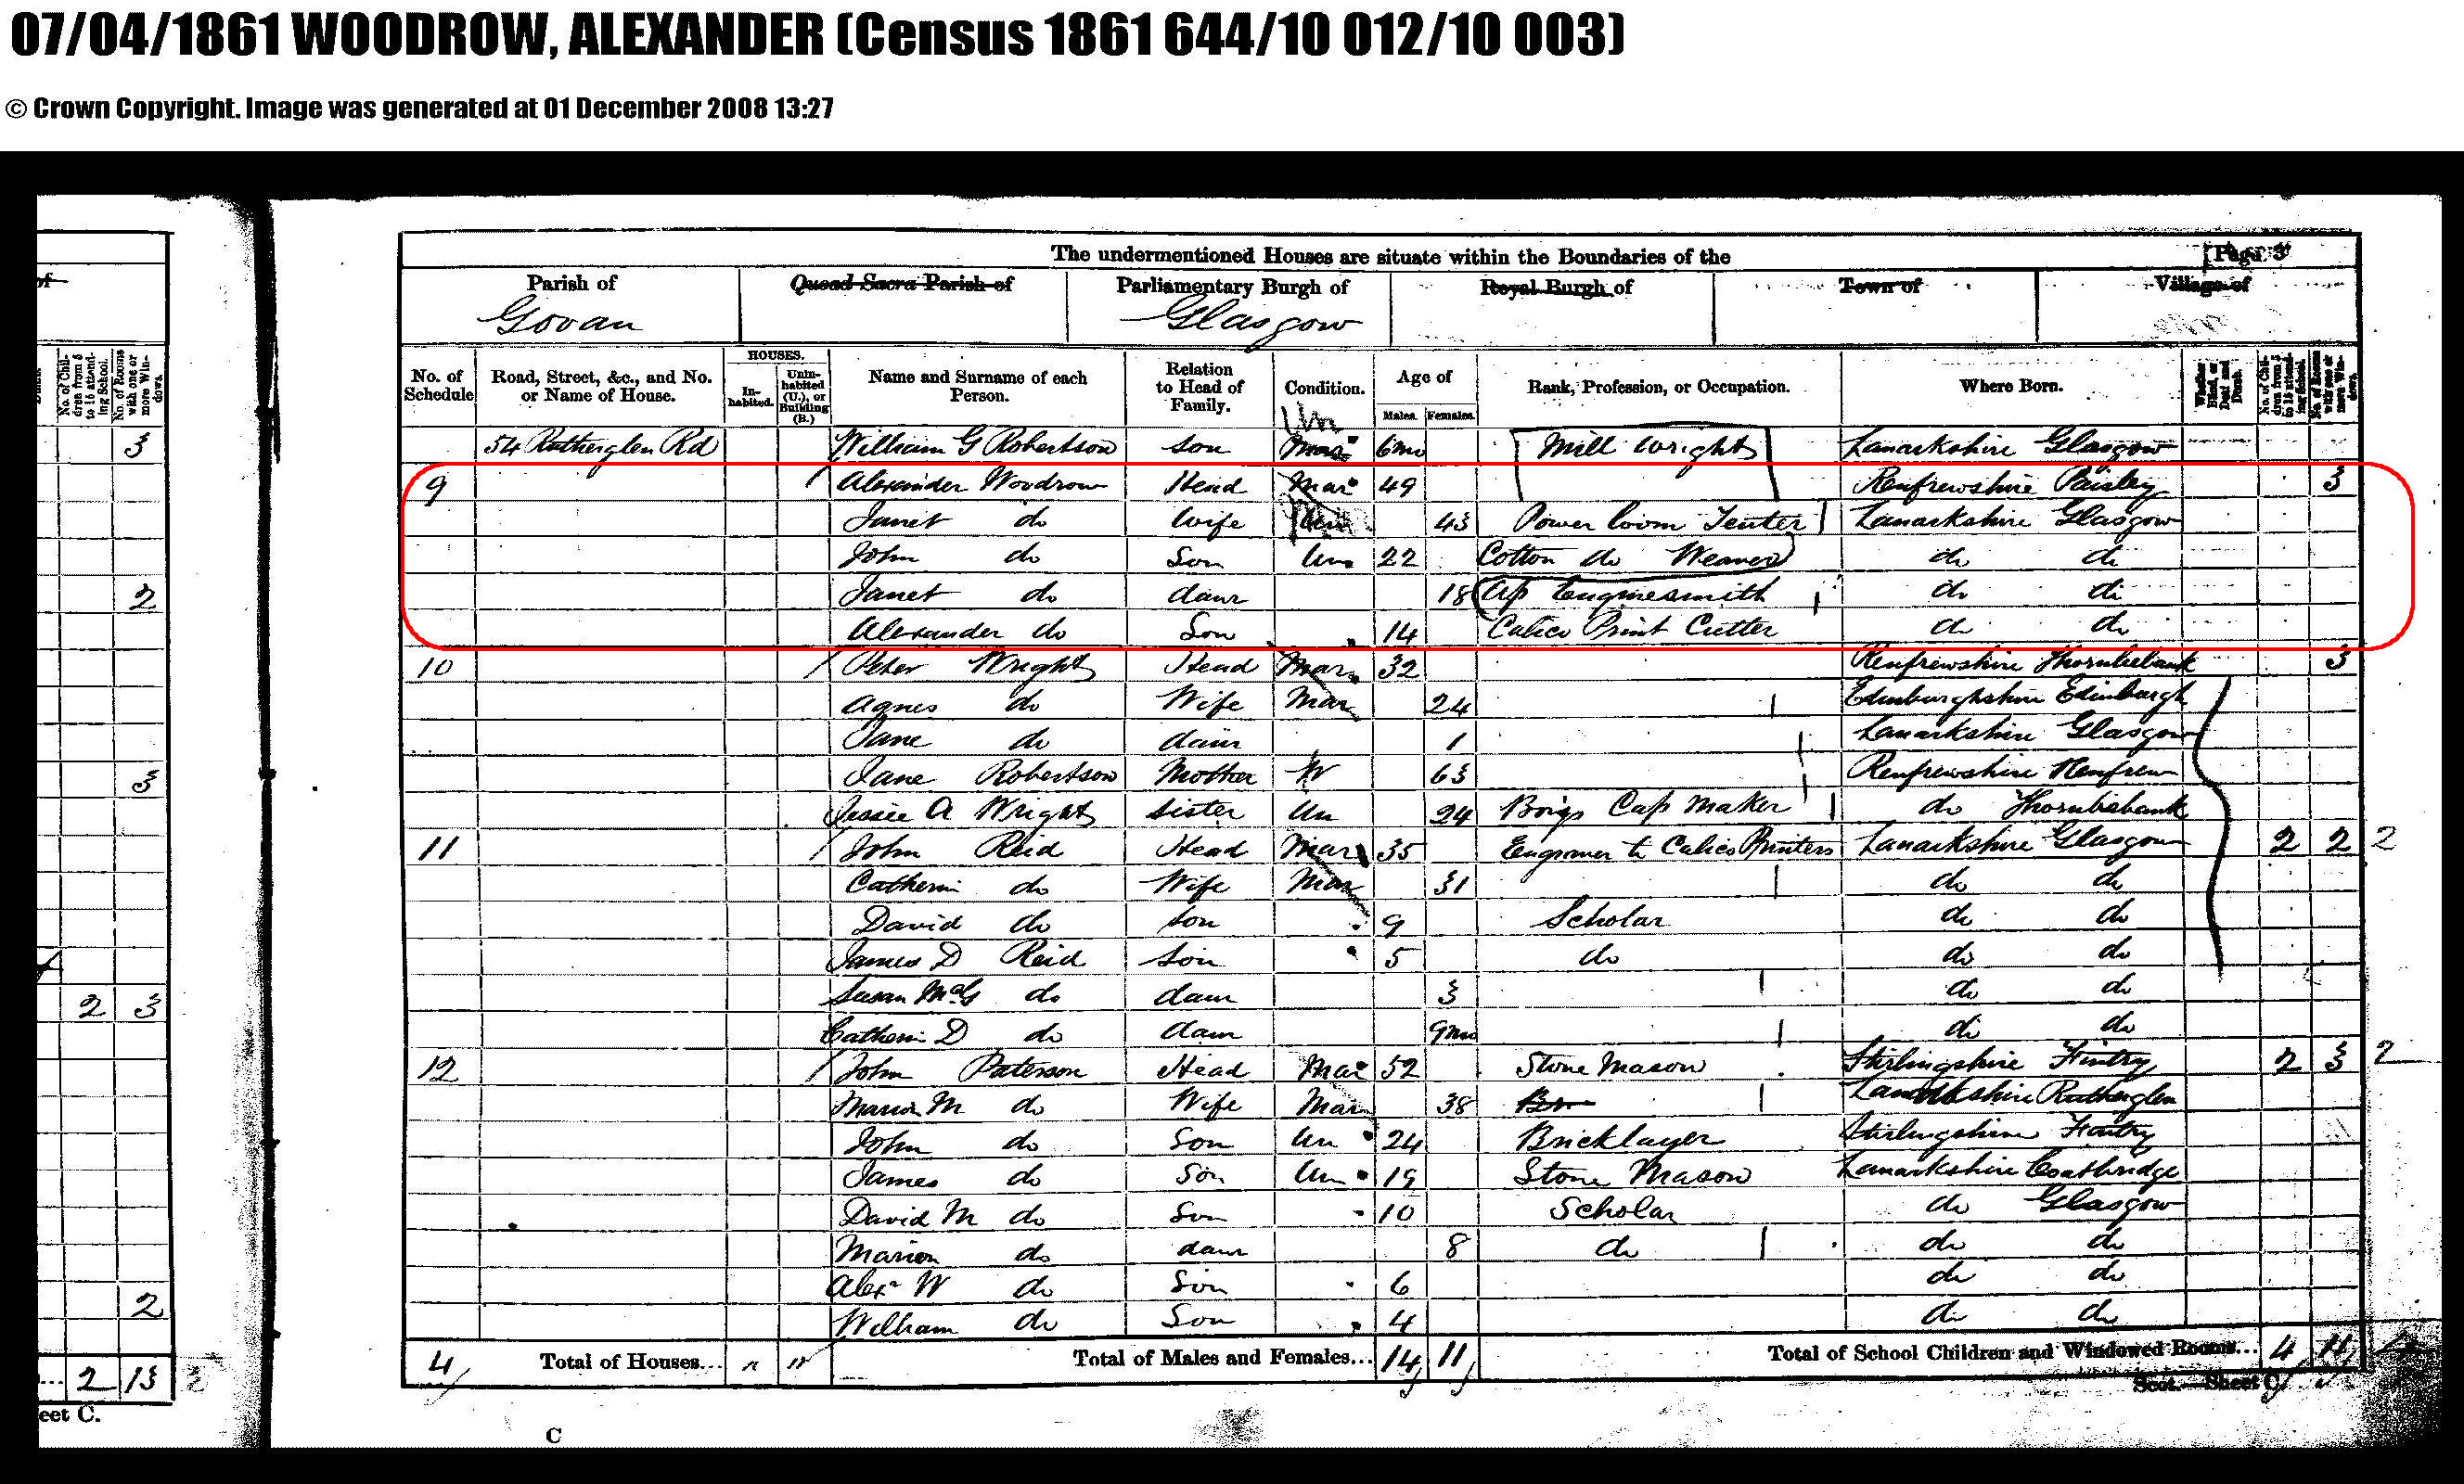 07/04/1861 WOODROW, ALEXANDER (Census 1861 644/10 012/10 003)
© Crown Copyright. Image was generated at 01 December 2008 13:27
The undermentioned Houses are situate within the Boundaries of the [Page 3
Parish of Quoad Sacra Parish of Parliamentary Burgh of Royal Burgh of Town of Village of
Govan Glasgow
No. of Schedule Road, Street, &c., and No. or Name of House. HOUSES. In-habited. Unin-habited (U.), or Building (B.) Name and Surname of each Person. Relation to Head of Family. Condition. Age of Males. Females. Rank, Profession, or Occupation. Where Born. Whether Blind, or Deaf and Dumb. No. of Chil-dren from 5 to 15 attend-ing School. No. of Rooms with one or more Win-dows.
54 Rutherglen Rd William G Robertson son Un 6mo Mill wright Lanarkshire Glasgow
9 / Alexander Woodrow Head Mar 49 Renfrewshire Paisley 3
Janet do wife 43 Power loom Tenter Lanarkshire Glasgow
John do Son Un 22 Cotton do Weaver do do
Janet do daur 18 Ap Enginesmith do do
Alexander do Son 14 Calico Print Cutter do do
10 / Peter Wright Head Mar 32 Renfrewshire Thornliebank 3
Agnes do Wife Mar 24 Edinburghshire Edinburgh
Jane do daur 1 Lanarkshire Glasgow
Jane Robertson Mother W 63 Renfrewshire Renfrew
Jessie A Wright sister Un 24 Boys Cap Maker do Thornliebank
11 / John Reid Head Mar 35 Engraver to Calico Printers Lanarkshire Glasgow 2 2 2
Catherin do Wife Mar 31 do do
David do son 9 Scholar do do
James D Reid son 5 do do do
Susan McG do daur 3 do do
Catherin D do daur 9mo do do
12 / John Paterson Head Mar 52 Stone Mason Stirlingshire Fintry 2 3 2
Marion M do Wife Mar 38 Lanarkshire Rutherglen
John do Son Un 24 Bricklayer Stirlingshire Fintry
James do Son Un 19 Stone Mason Lanarkshire Coatbridge
David M do Son 10 Scholar do Glasgow
Marion do daur 8 do do do
Alexr W do Son 6 do do
William do Son 4 do do
4 Total of Houses... Total of Males and Females... 14 11 Total of School Children and Windowed Rooms... 4 11
Scot.—Sheet C
C
No. of Chil-dren from 5 to 15 attend-ing School. No. of Rooms with one or more Win-dows.
3
2
3
2 3
2
... 2 13
eet C.